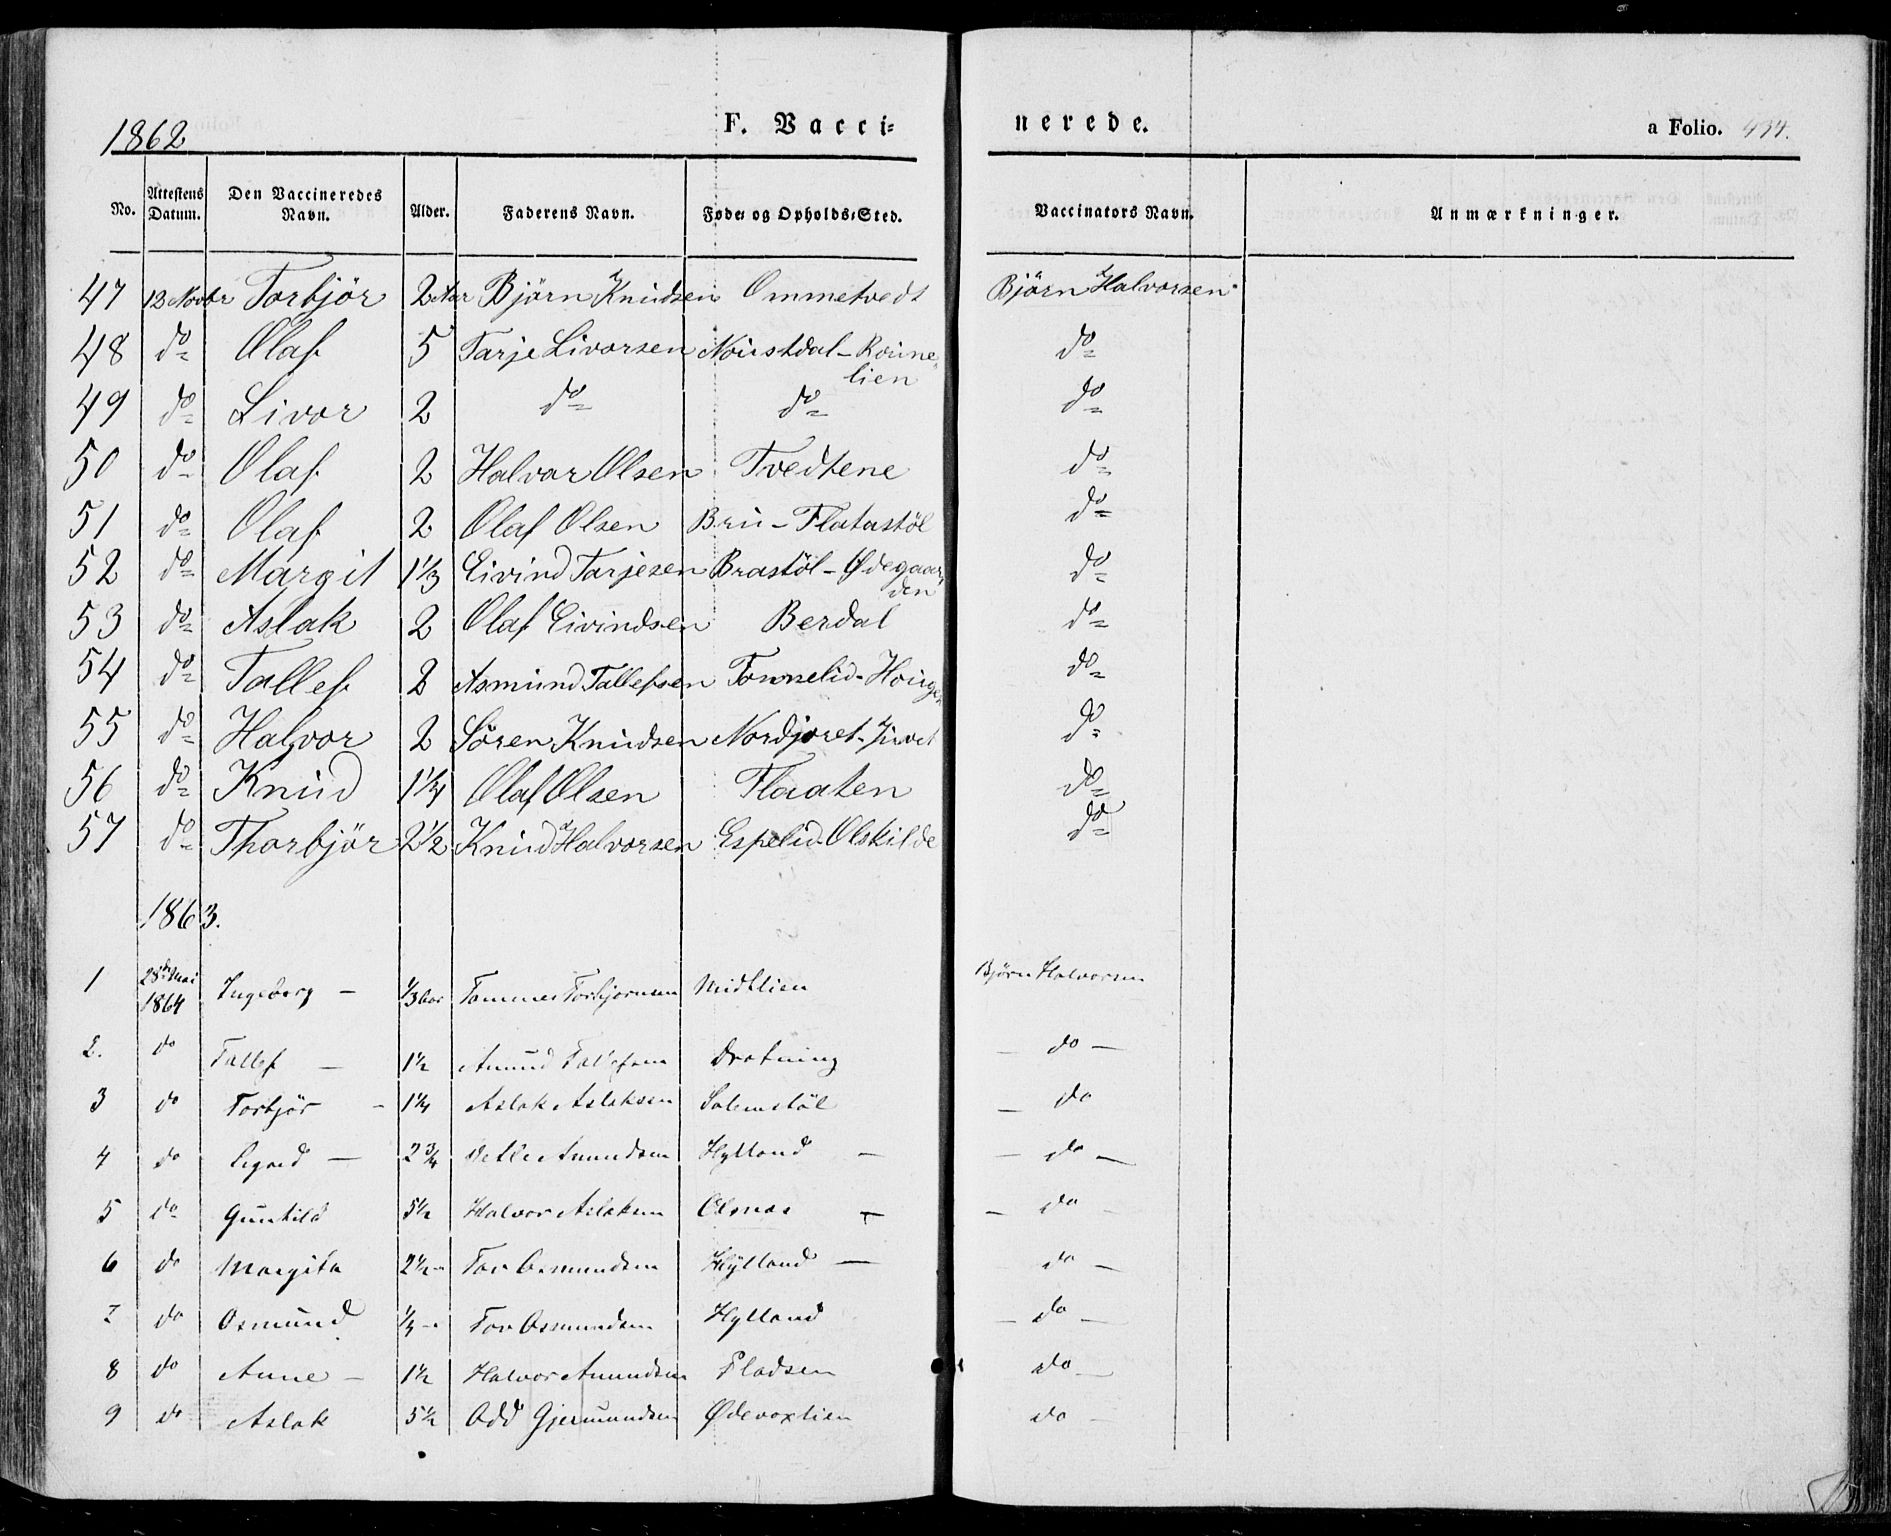 1862
F. Vacci=
nerede.
a Folio. 434.
No. Attestens Datum. Den Vaccineredes Navn. Alder. Faderens Navn. Føde= og Opholds=Sted. Vaccinators Navn. Anmærkninger.
47 12 Novbr Torbjör 2 Aar Björn Knudsen Ommetvedt Björn Halvorsen
48 do Olaf 5 Tarje Livorsen Noustdal - Roune= do
lien
49 do Livor 2 do do do
50 do Olaf 2 Halvor Olsen Tvedtene do
51 do Olaf 2 Olaf Olsen Bru - Flatastöl do
52 do Margit 1 1/3 Eivind Tarjesen Brastöl - Ødegaar= do
den
53 do Aslak 2 Olaf Eivindsen Berdal do
54 do Tallef 2 Asmund Tallefsen Tonnelid - do
55 do Halvor 2 Sören Knudsen Nordjoret - do
56 do Knud 1 1/4 Olaf Olsen Flaaten do
57 do Thorbjör 2 1/2 Knud Halvorsen Espelid - Olskilde do
1863.
1 28de Mai 1864 Ingeborg - 1/3 aar Tommes Torbjornsen Midtlien Björn Halvorsen
2. do Tallef - 1 1/2 Amund Tallefsen Drotning - do -
3 do Torbjör - 1 1/4 Aslak Aslaksen Solemstöl - do
4 do Sigrid - 2 3/4 Amundsen Hylland - - do -
5 do Gunhild 5 1/2 Halvor Aslaksen Olsnas - - do -
6 do Margita 2 1/2 - Tov Osmundsen Hylland - do -
7 do Osmund 1/4 - Tov Osmundsen Hylland - do -
8 do Anne - 1 1/2 Halvor Amundsen Flodsen do -
9 do Aslak 5 1/2 Odd Gjermundsen do -